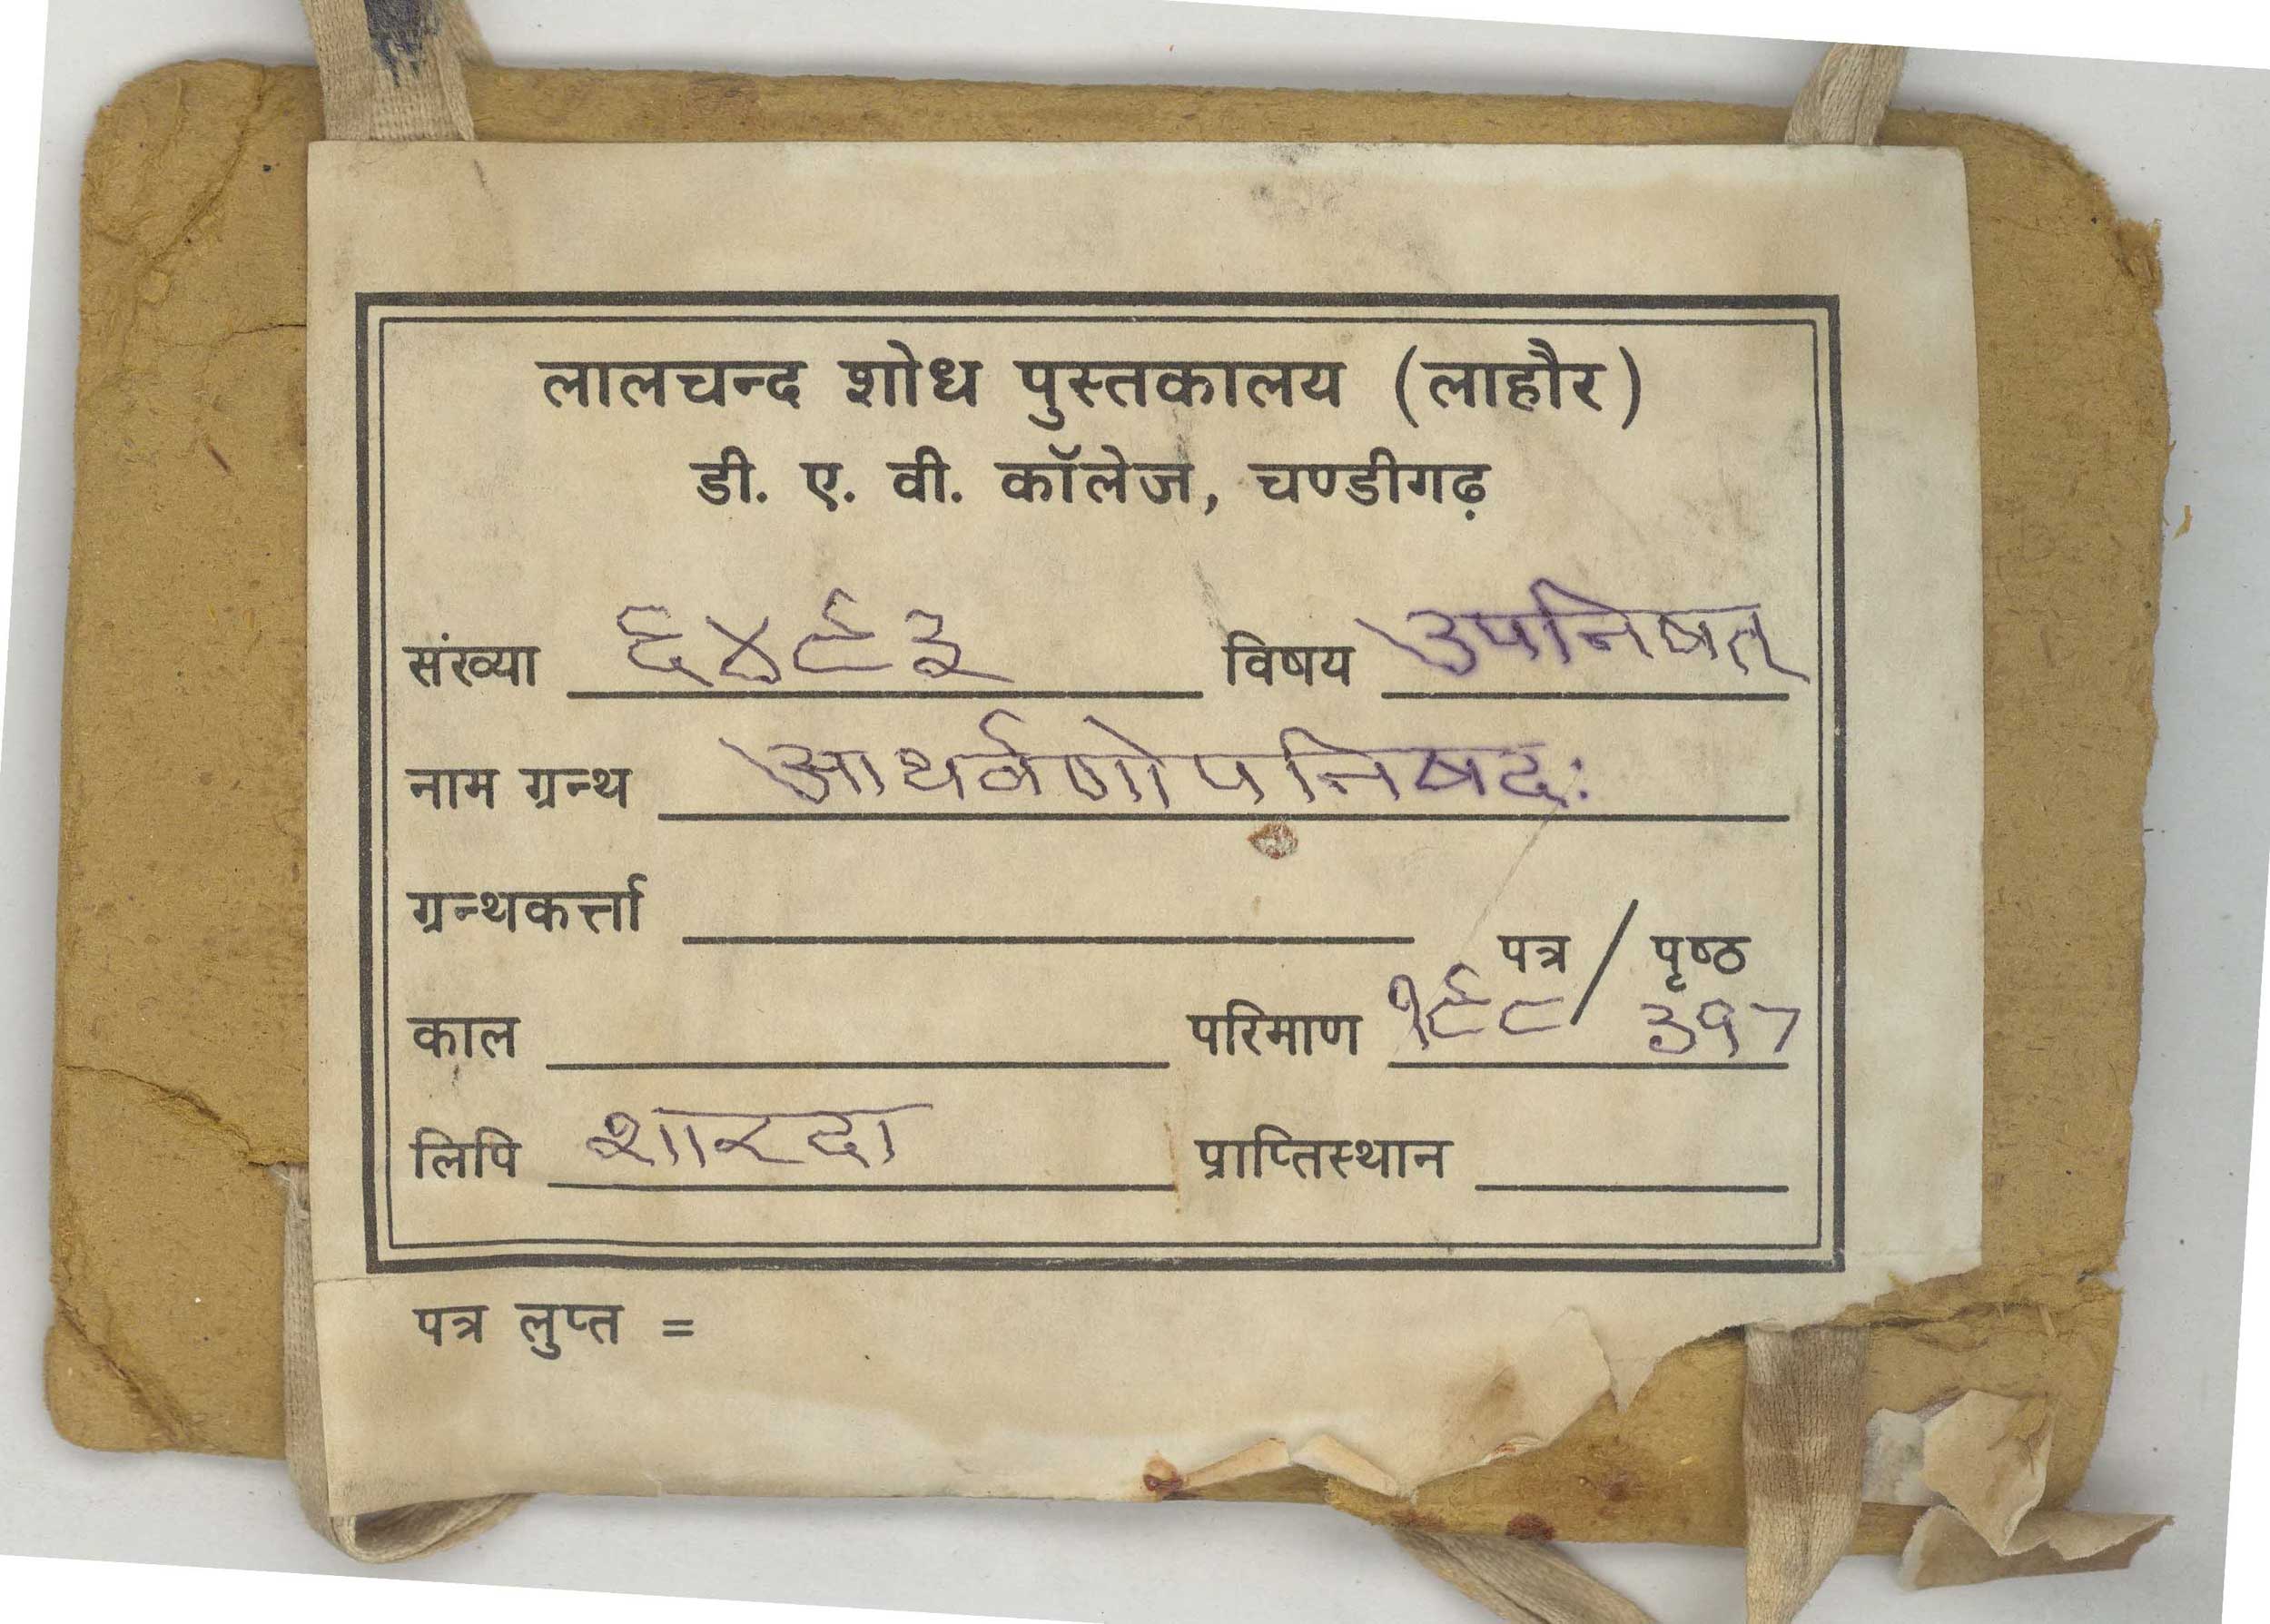 लालचन्द शोध पुस्तकालय (लाहौर)
डी. ए. वी. कॉलेज, चण्डीगढ़
संख्या ६४९३ विषय उपनिषत्
नाम ग्रन्थ आथर्वणोपनिषदः
ग्रन्थकर्त्ता
पत्र / पृष्ठ
काल परिमाण १९८ / ३९७
लिपि शारदा प्राप्तिस्थान
पत्र लुप्त =